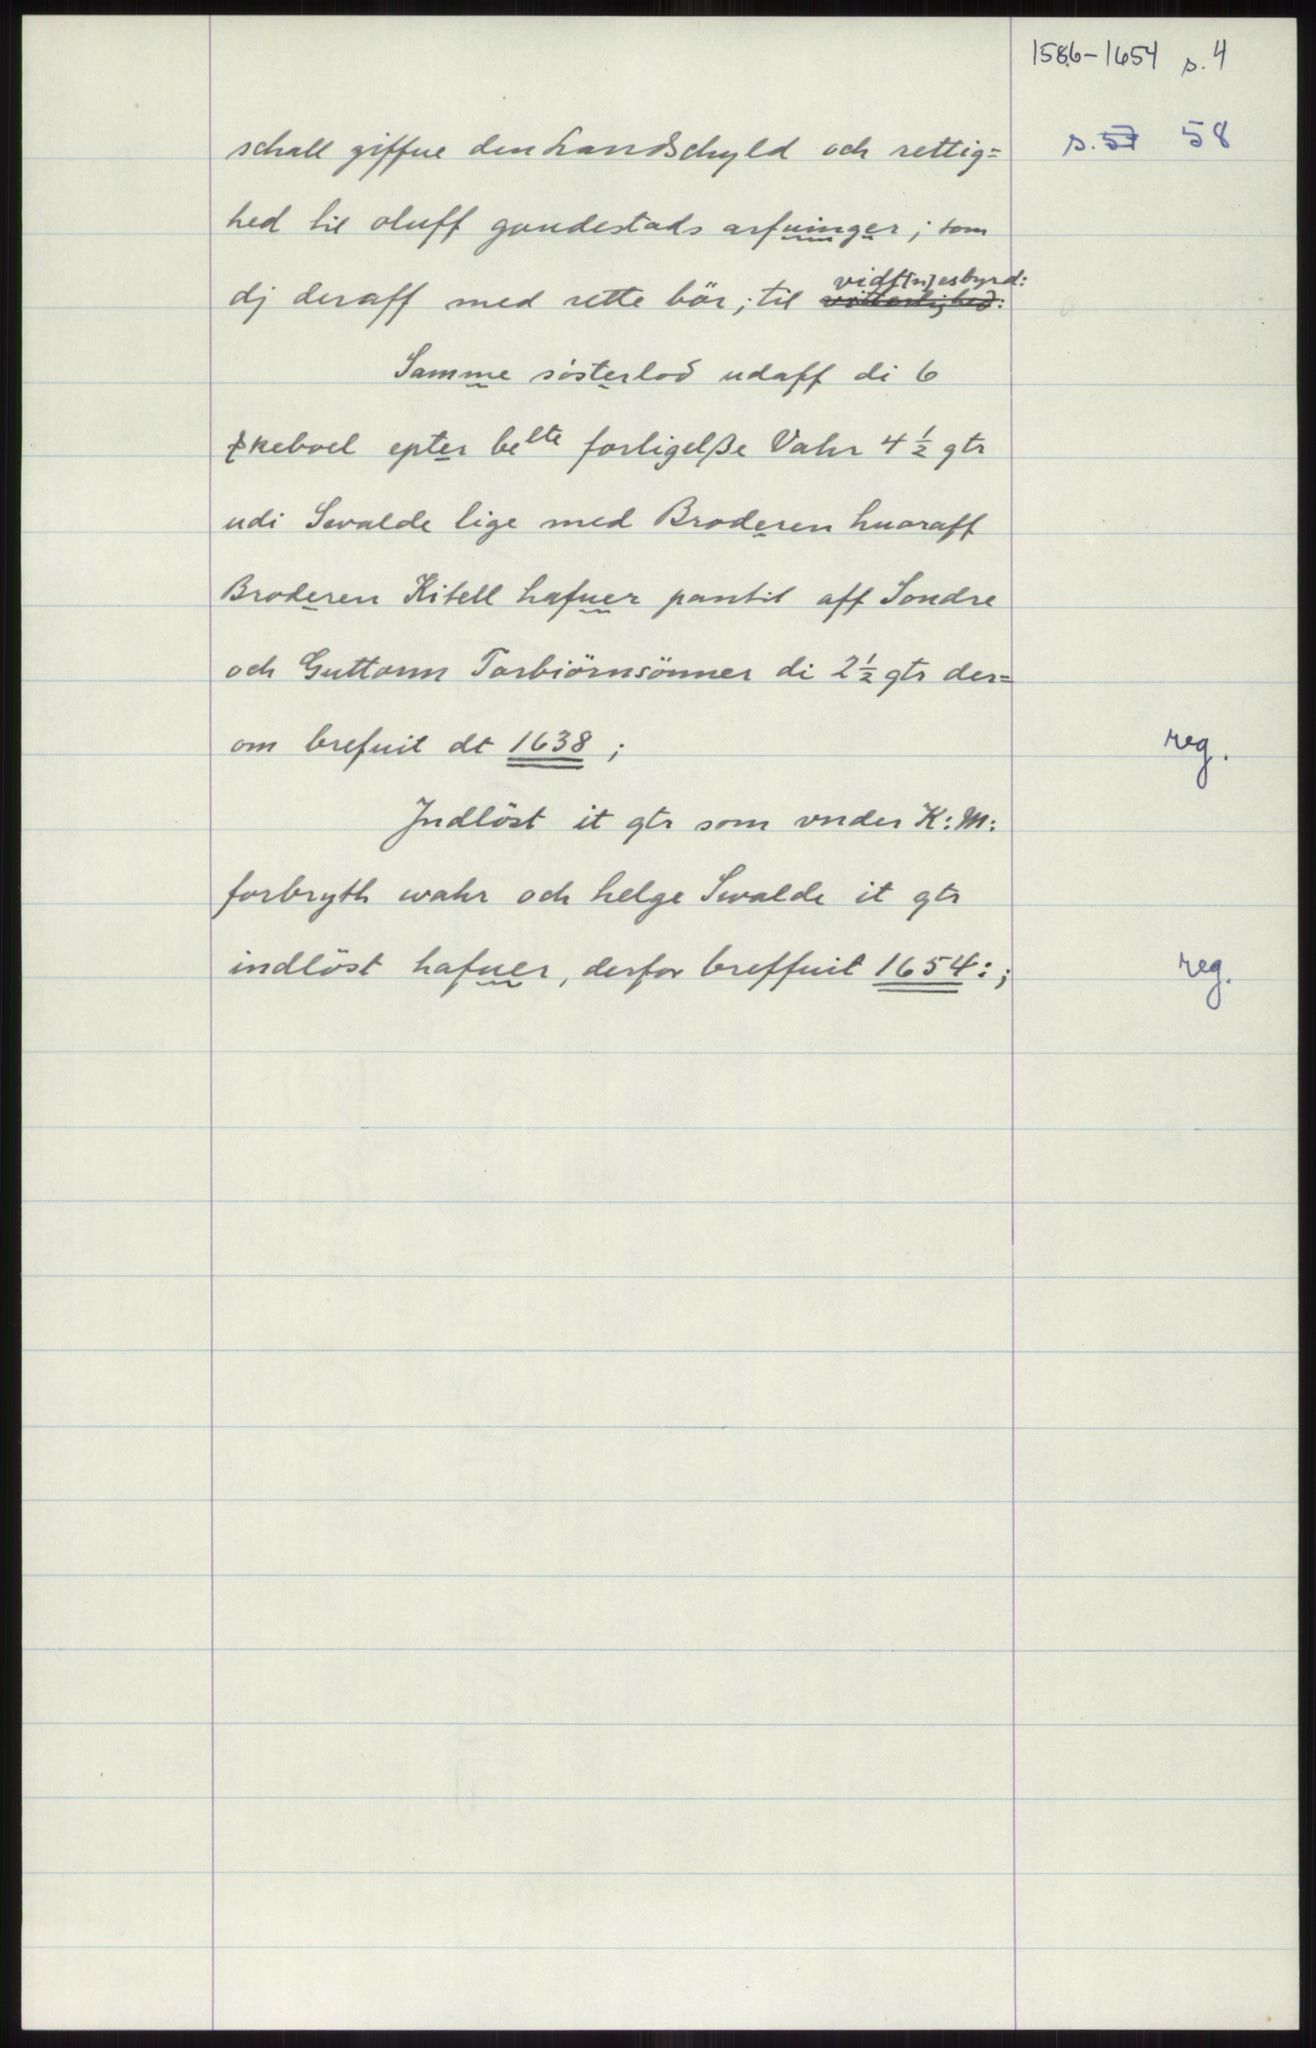 1586-1654 s. 4
s. 57 58
schall giffue den Landschyld och rettig=
hed til oluff gundestads arfuinger; som
dj deraff med rette bör; til vidt[n]esbyrd:
vitterlighed:
Samme sösterlod udaff di 6
skeboel epter belte forligelße Vahr 4 1/2 gtr
udi Swalde lige med Broderen huoraff
Broderen Kitell hafuer pantit aff Sondre
och Guttorm Torbiörnsönner di 2 1/2 gtr der=
om brefuit dt 1638;
reg.
Jndlöst it gtr som vnder K: M:
forbryth wahr och helge Swalde it gtr
indlöst hafuer, derfor breffuit 1654:;
reg.